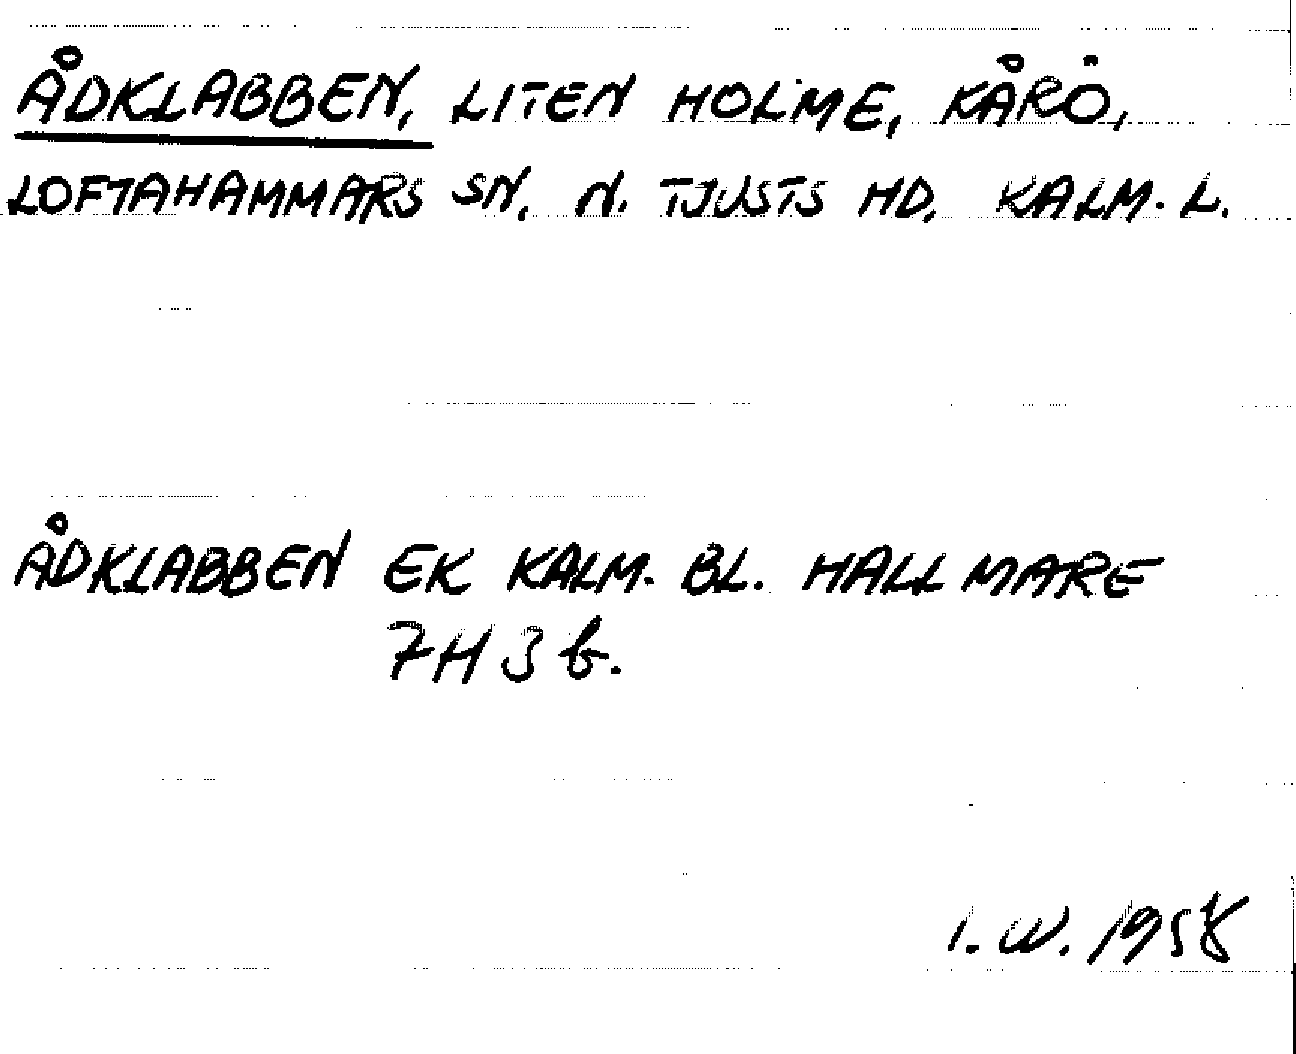 ÅDKLABBEN, LITEN HOLME, KÅRÖ,
LOFTAHAMMARS SN. N. TJUSTS HD. KALM. L.
ÅDKLABBEN EK KALM. BL. HALLMARE
7H3b.
I. W. 1958